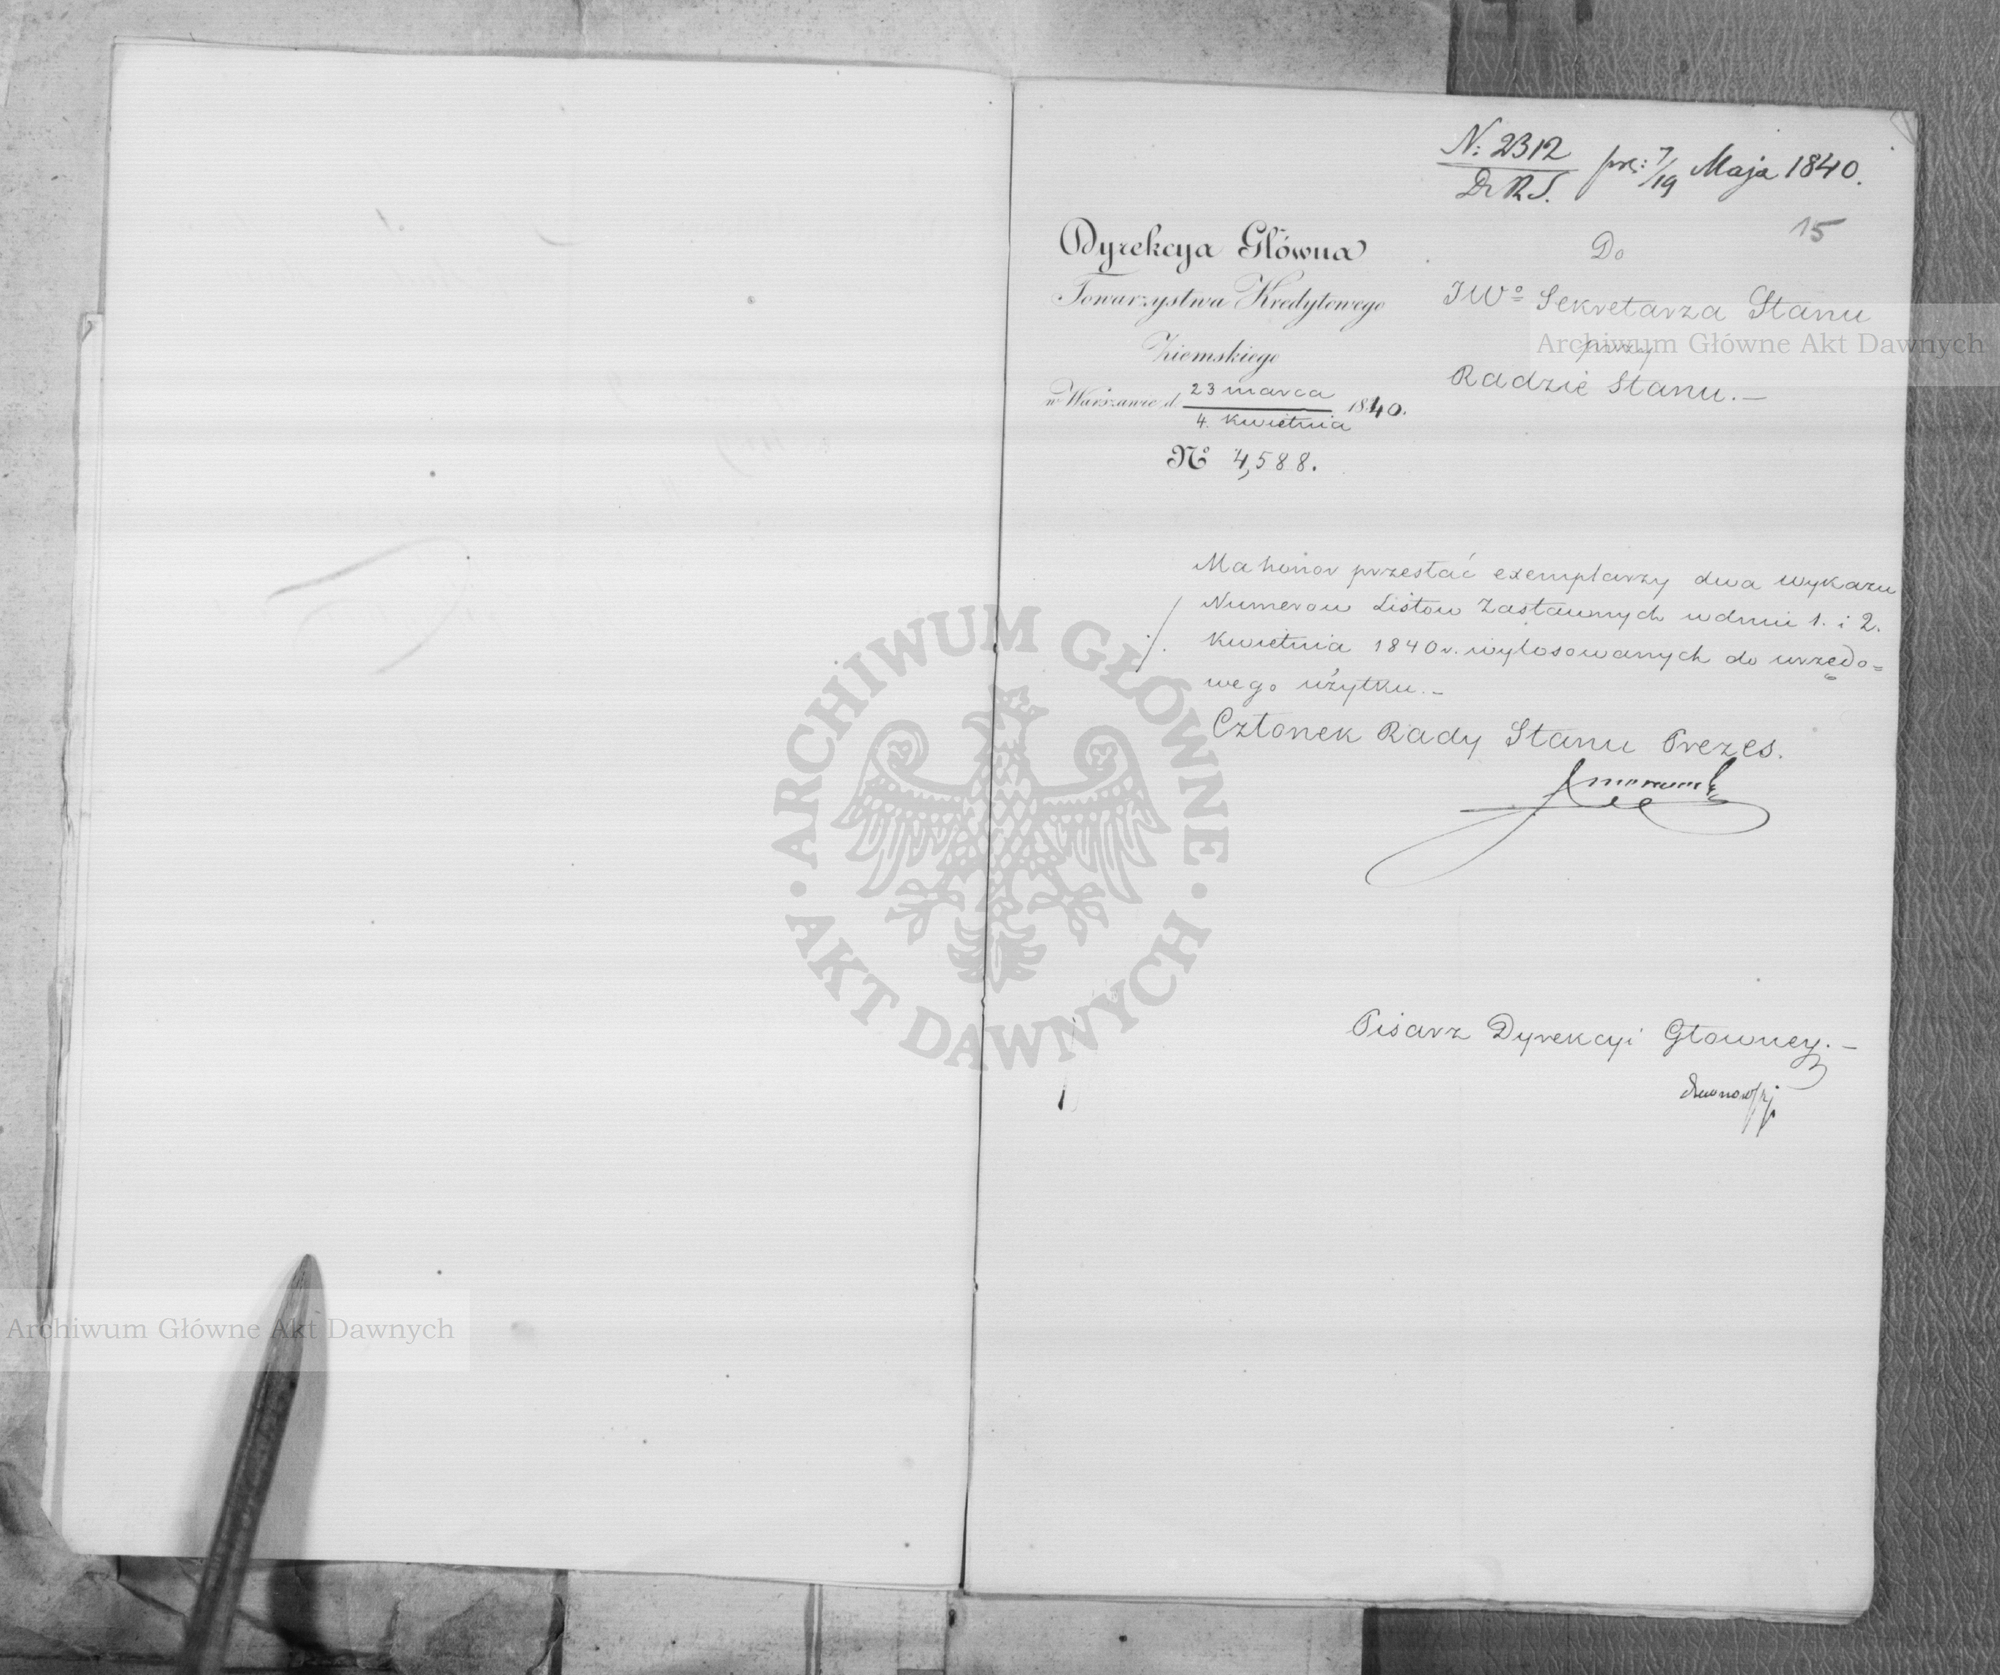 N: 2312 prę: 7/19 Maja 1840.
D. R. S.
15
Dyrekcya Główna
Towarzystwa Kredytowego
Ziemskiego
w Warszawie d. 23 marca / 4. Kwietnia 1840.
Nº 4,588.
Do
JWº Sekretarza Stanu
przy
Radzie Stanu.—
Ma honor przesłać exemplarzy dwa wykazu
Numerow Listow Zastawnych w dniu 1. i 2.
Kwietnia 1840 r. wylosowanych do urzędo=
wego użytku.—
Członek Rady Stanu Prezes.
Pisarz Dyrekcyi Głowney.—
Archiwum Główne Akt Dawnych
Archiwum Główne Akt Dawnych
ARCHIWUM GŁÓWNE
AKT DAWNYCH